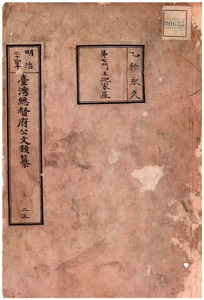 乙種永久
第七門土地家屋
明治
三十二年
臺灣總督府公文類纂
二五
00625